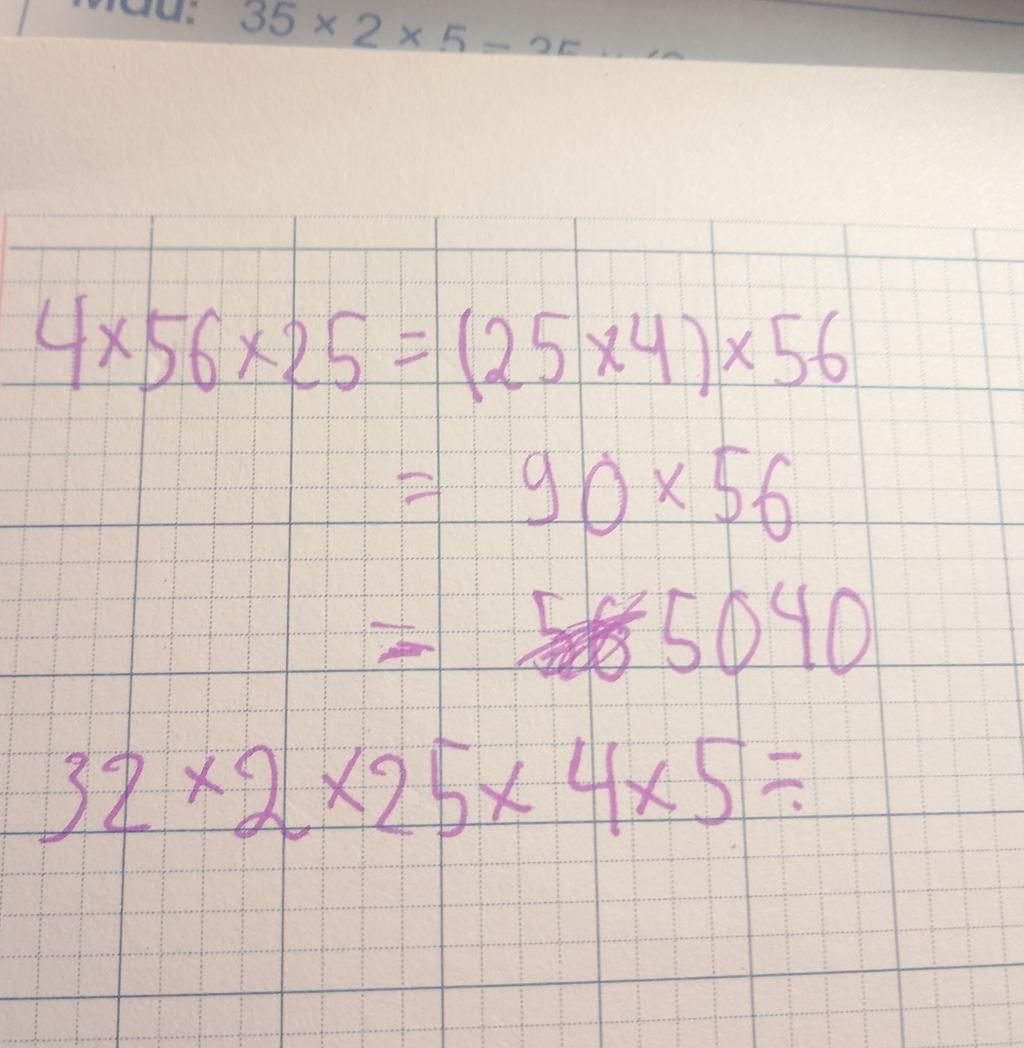 Mẫu: 35 × 2 × 5 = 35 ×
4×56×25=(25×4)×56
= 90×56
= 5040
32×2×25×4×5=